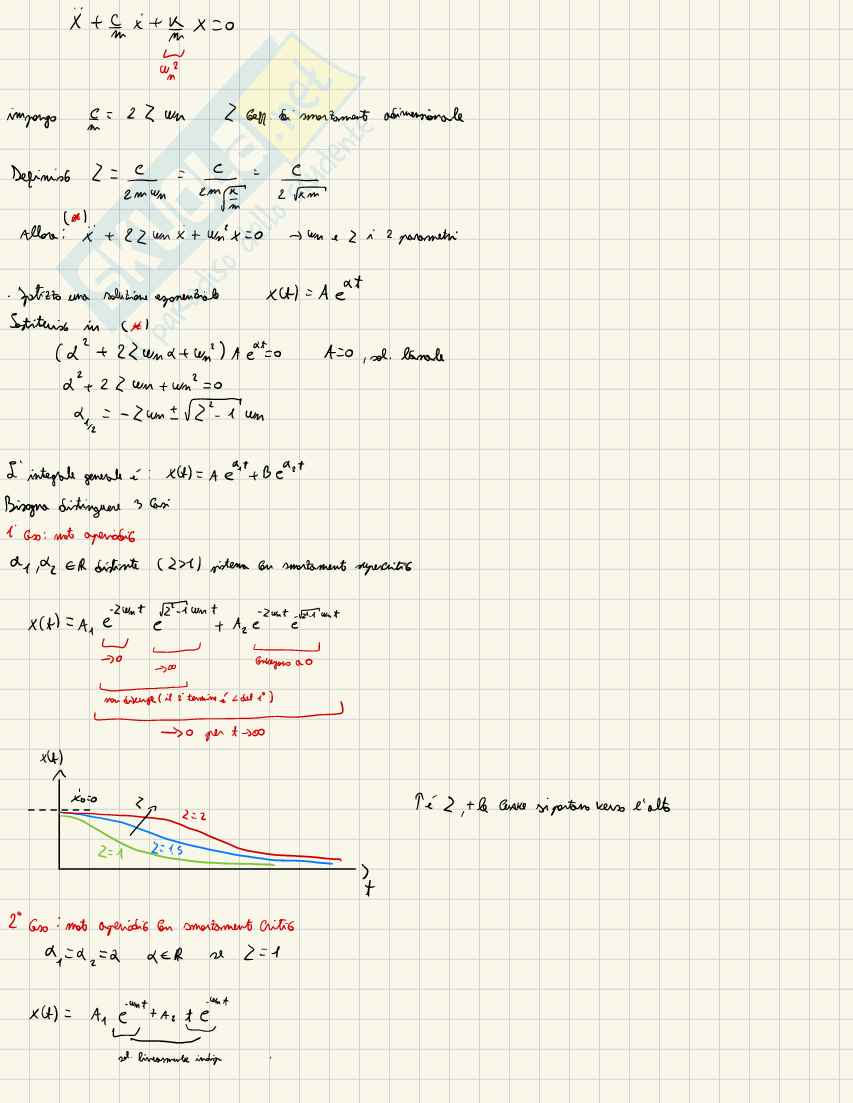 ẍ + c/m ẋ + k/m x = 0
ωn²
impongo c/m = 2 Z ωn Z coeff. di smorzamento adimensionale
Definisco Z = c/(2 m ωn) = c/(2m√(k/m)) = c/(2√(km))
(*)
Allora: ẍ + 2Z ωn ẋ + ωn² x = 0 → ωn e Z i 2 parametri
. Ipotizzo una soluzione esponenziale x(t) = A e^(αt)
Sostituisco in (*)
(α² + 2Zωnα + ωn²) A e^(αt) = 0 A=0, sol. banale
α² + 2 Z ωn + ωn² = 0
α1/2 = -Zωn ± √(Z² - 1) ωn
L'integrale generale è: x(t) = A e^(α1t) + B e^(α2t)
Bisogna distinguere 3 casi
1° Caso: moto aperiodico
α1, α2 ∈ R distinte (Z>1) sistema con smorzamento supercritico
x(t) = A1 e^(-Zωnt) e^(√(Z²-1)ωnt) + A2 e^(-Zωnt) e^(-√(Z²-1)ωnt)
→0
→∞
convergono a 0
non diverge (il 2° termine è < del 1°)
→0 per t→∞
x(t)
ẋ0=0
Z
Z=2
Z=1
Z=1,5
t
↑ è Z, + le curve si portano verso l'alto
2° Caso: moto aperiodico con smorzamento critico
α1 = α2 = α α∈R se Z=1
x(t) = A1 e^(-ωnt) + A2 t e^(-ωnt)
sol linearmente indip
skuola.net
paradiso dello studente